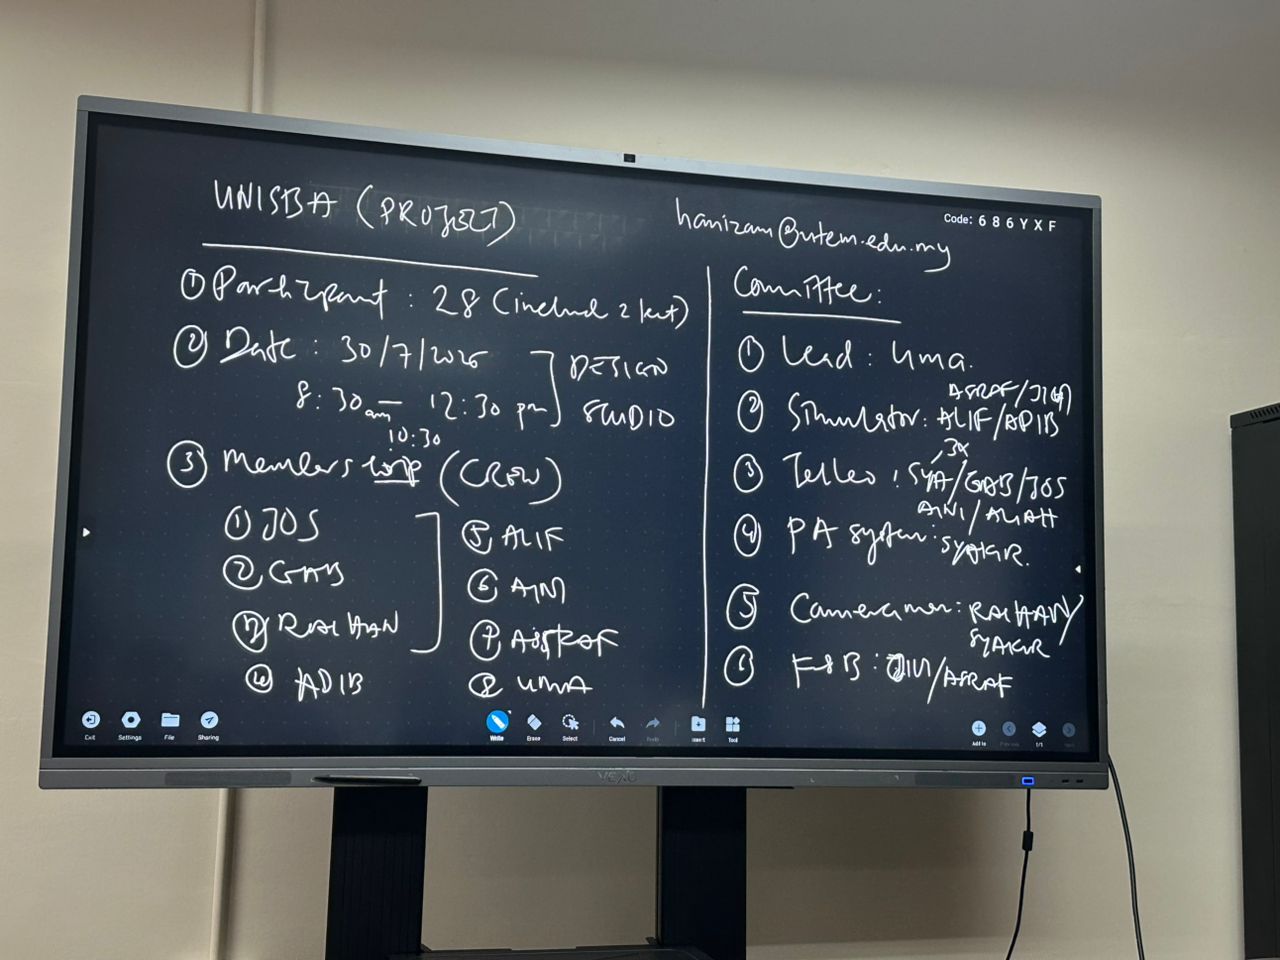 UNISBA (PROJECT)
hanizam@utem.edu.my
Code: 686YXF
① Participant : 28 (includ 2 lect)
② Date : 30/7/2026
8:30am — 12:30 pm
10:30
DESIGN
STUDIO
③ Members (CREW)
① JOS
② GAB
③ RAIHAN
④ ADIB
⑤ ALIF
⑥ AINI
⑦ ASRAF
⑧ UMA
Committee:
① Lead: Uma.
② Simulator: ALIF/ADIB
ASRAF/
③ : SYA/GAB/JOS
3x
AINI/ALIAH
④ PA system: SYAKIR.
⑤ Cameraman: RAIHAN/
SYAKIR
⑥ F&B: /ASRAF
Exit
Settings
File
Sharing
Write
Erase
Select
Cancel
Redo
Insert
Tool
Add to
1/1